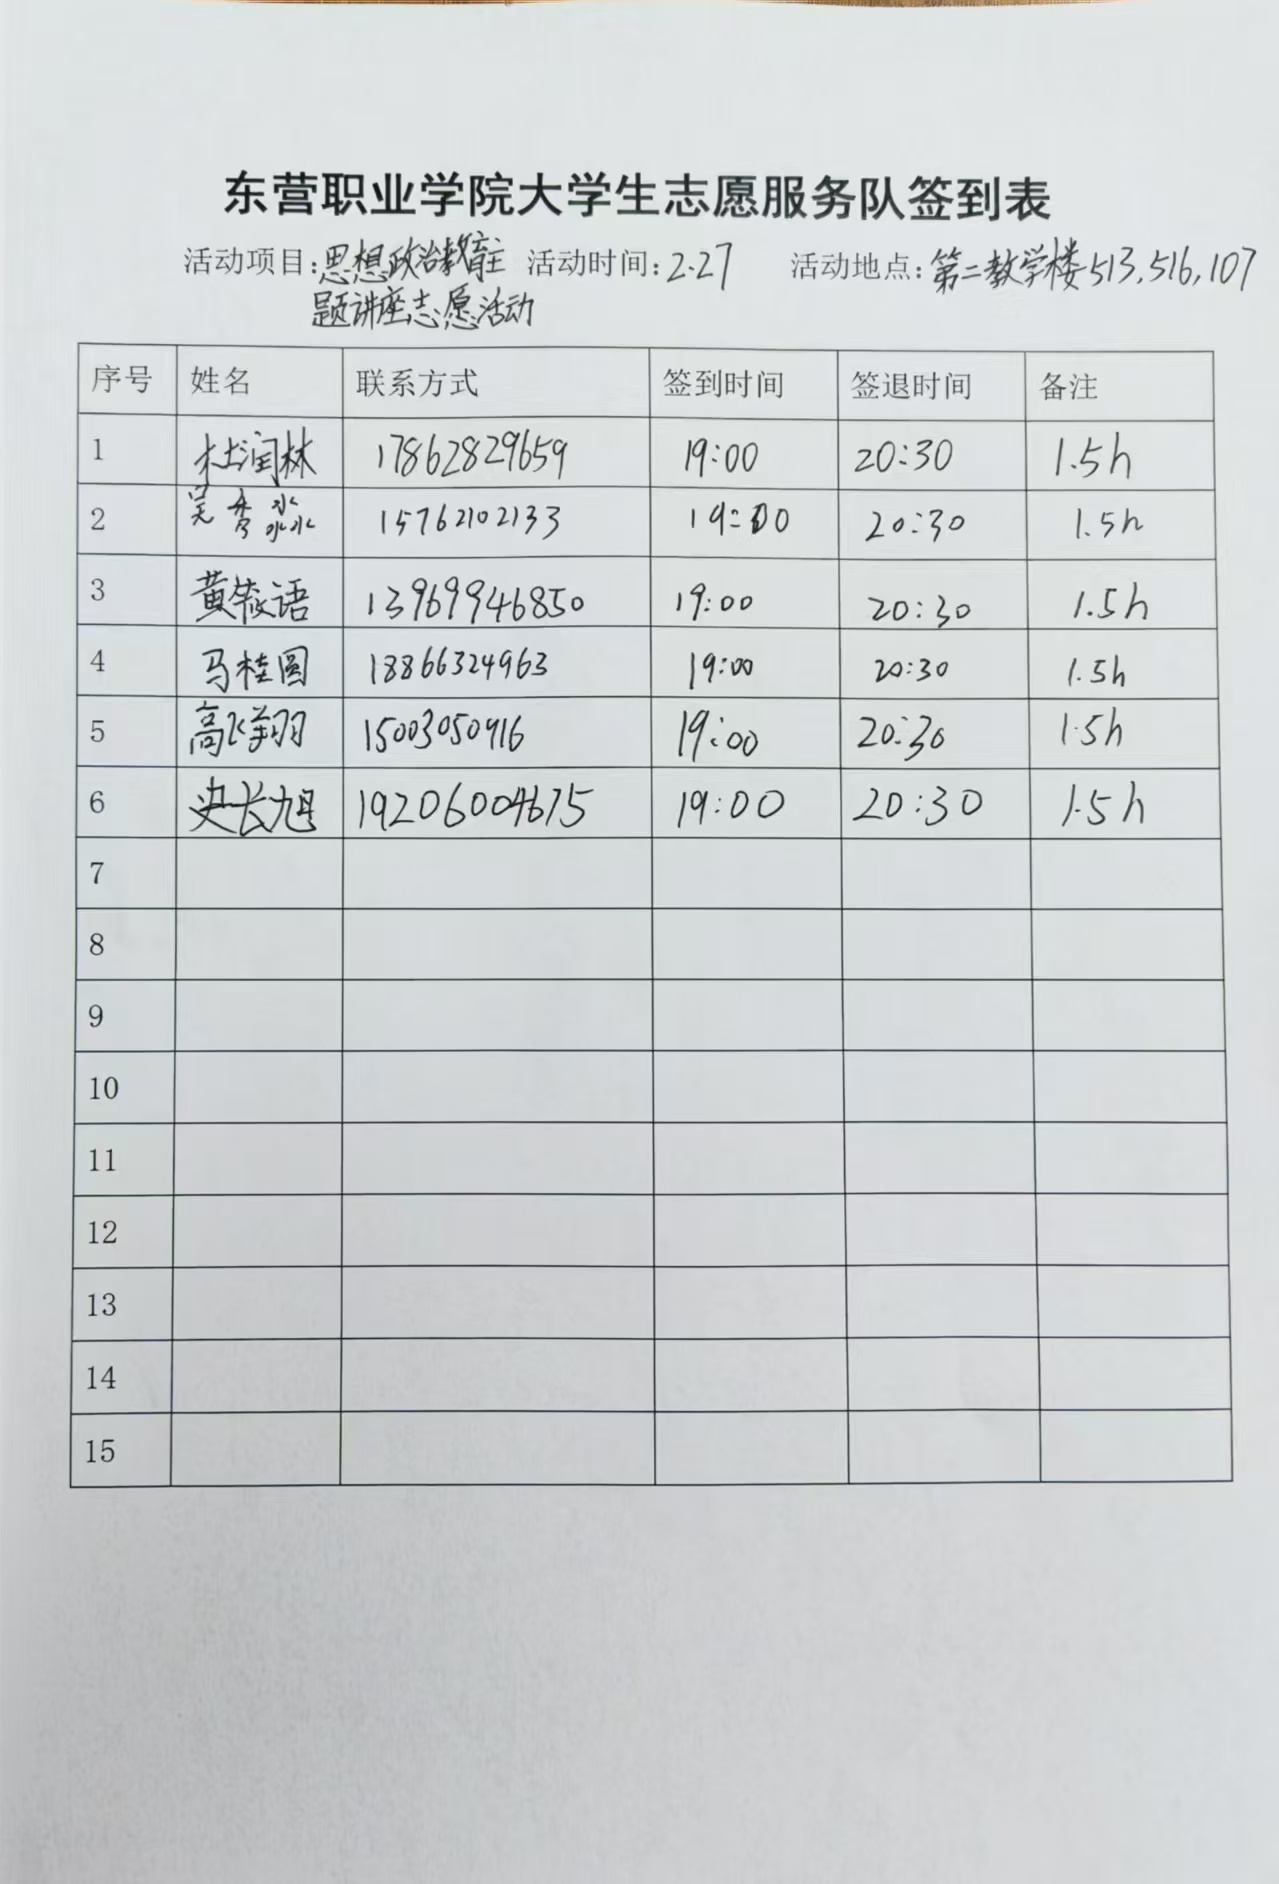 东营职业学院大学生志愿服务队签到表
活动项目:思想政治教育主 活动时间:2.27 活动地点:第二教学楼513,516,107
题讲座志愿活动
序号 姓名 联系方式 签到时间 签退时间 备注
1 杜润林 17862829659 19:00 20:30 1.5h
2 吴秀淼 15762102133 19:00 20:30 1.5h
3 黄筱语 13969946850 19:00 20:30 1.5h
4 马桂圆 18866324963 19:00 20:30 1.5h
5 高飞翔 15003050916 19:00 20:30 1.5h
6 史长旭 19206004675 19:00 20:30 1.5h
7
8
9
10
11
12
13
14
15